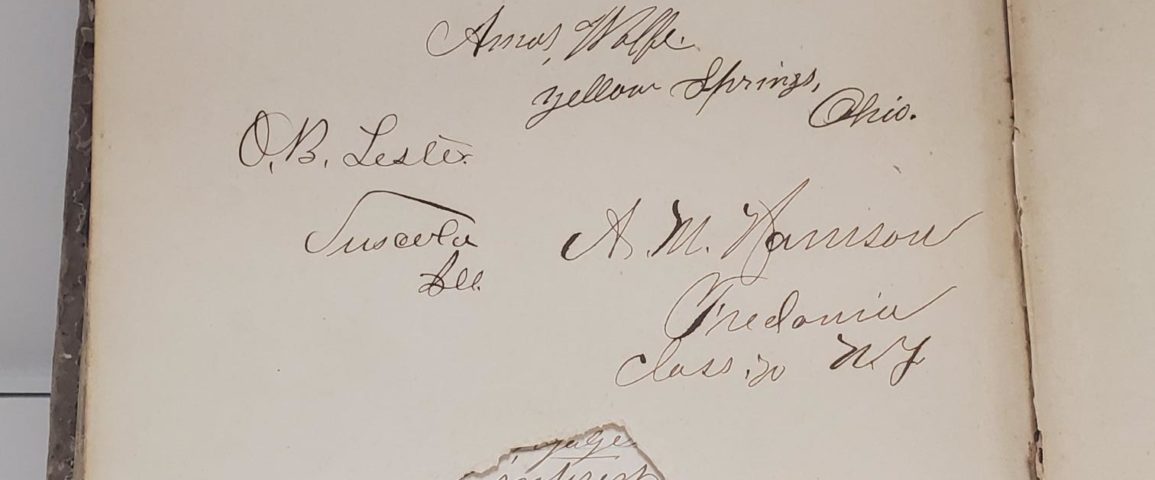 Amos Wolfe.
Yellow Springs,
Ohio.
O. B. Lester
Tuscola
Ill.
A. M. Harrison
Fredonia
Class '70 N.Y